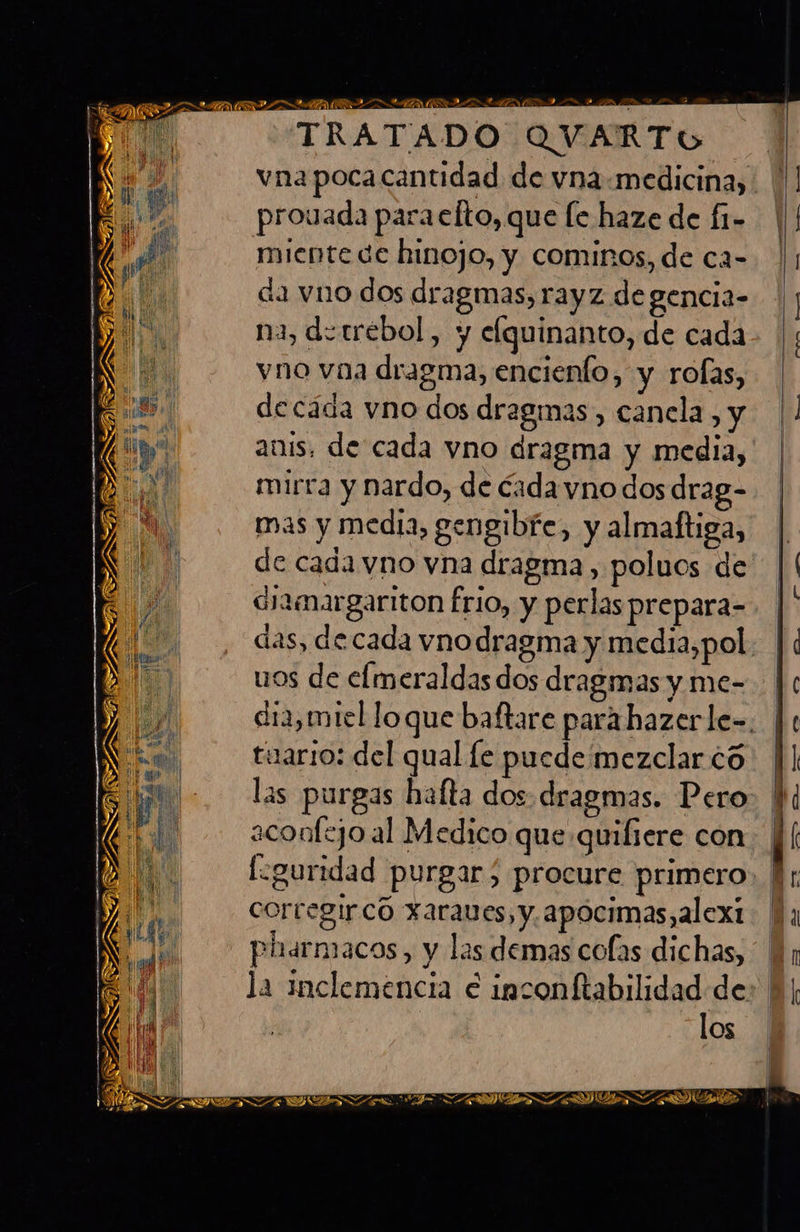 TRATADO QVARTO
vna poca cantidad de vna medicina,
prouada para eſto, que ſe haze de ſi-
miente de hinojo, y cominos, de ca-
da vno dos dragmas, rayz de gencia-
na, de trebol, y eſquinanto, de cada
vno vna dragma, encienſo, y roſas,
de cáda vno dos dragmas, canela, y
anis, de cada vno dragma y media,
mirra y nardo, de cada vno dos drag-
mas y media, gengibre, y almaſtiga,
de cada vno vna dragma, poluos de
diamargariton frio, y perlas prepara-
das, de cada vno dragma y media, pol
uos de eſmeraldas dos dragmas y me-
dia, miel lo que baſtare para hazer le-
tuario: del qual ſe puede mezclar cõ
las purgas haſta dos dragmas. Pero
aconſejo al Medico que quiſiere con
ſeguridad purgar; procure primero
corregir cõ xaraues, y apocimas, alexi
pharmacos, y las demas coſas dichas,
la inclemencia e inconſtabilidad de
los